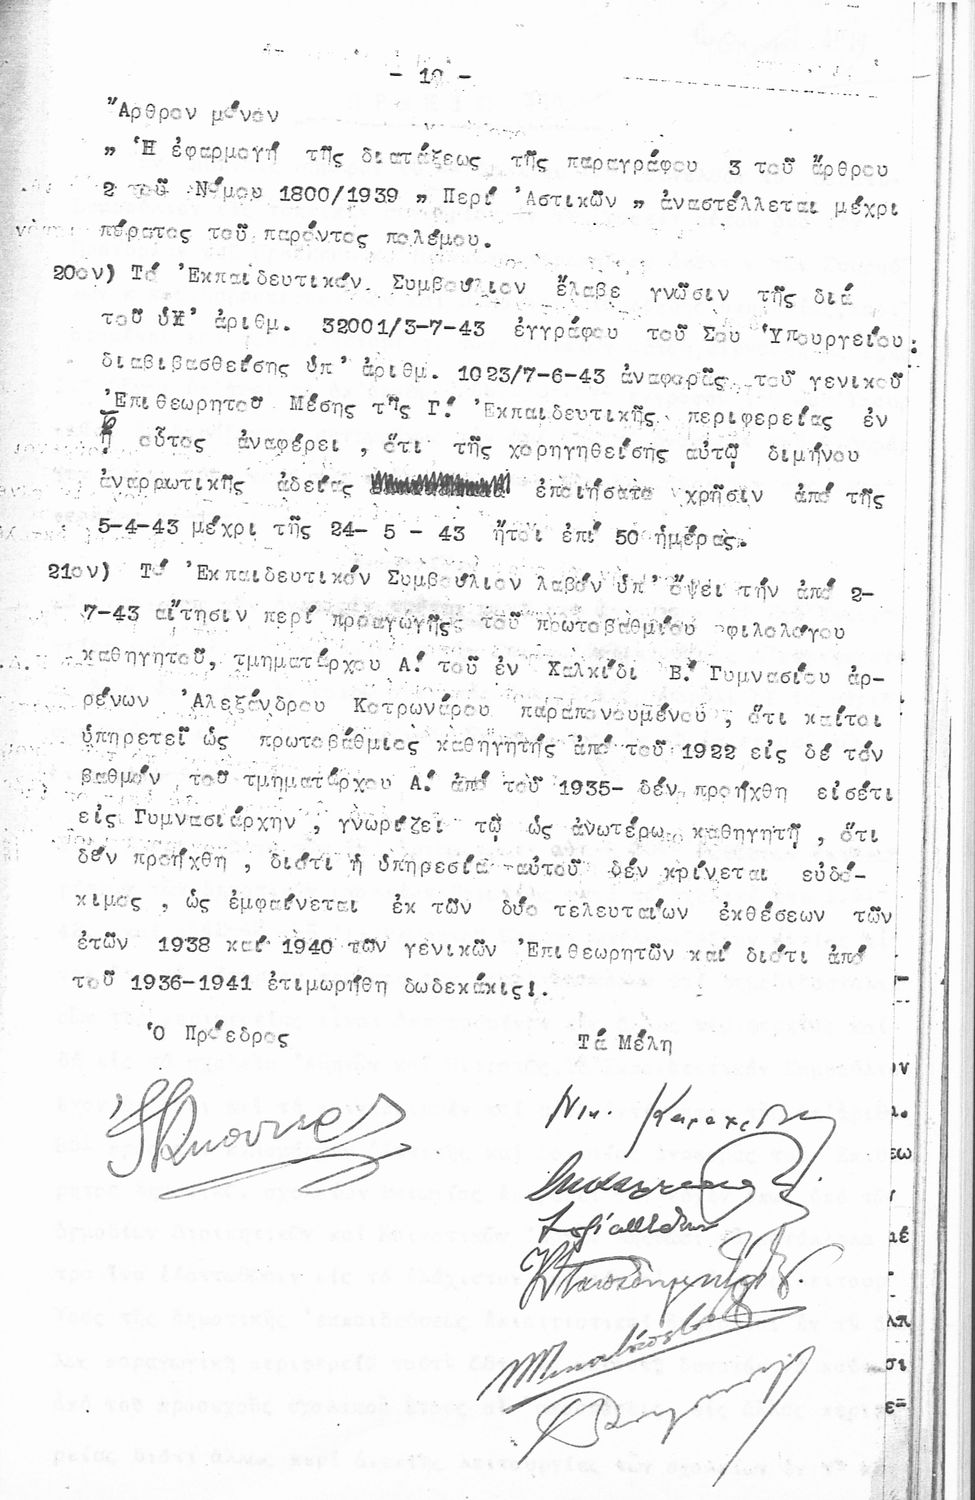 - 10 -
Ἄρθρον μόνον
„ Ἡ ἐφαρμογή τῆς διατάξεως τῆς παραγράφου 3 τοῦ ἄρθρου
2 τοῦ Νόμου 1800/1939 „ Περί Ἀστικῶν „ ἀναστέλλεται μέχρι
πέρατος τοῦ παρόντος πολέμου.
20ον) Τό Ἐκπαιδευτικόν Συμβούλιον ἔλαβε γνῶσιν τῆς διά
τοῦ ὑπ' ἀριθμ. 32001/3-7-43 ἐγγράφου τοῦ Σου Ὑπουργείου
διαβιβασθείσης ὑπ' ἀριθμ. 1023/7-6-43 ἀναφορᾶς τοῦ γενικοῦ
Ἐπιθεωρητοῦ Μέσης τῆς Γ! Ἐκπαιδευτικῆς περιφερείας ἐν
ᾗ οὗτος ἀναφέρει , ὅτι τῆς χορηγηθείσης αὐτῷ διμήνου
ἀναρρωτικῆς ἀδείας ἐποιήσατο χρῆσιν ἀπό τῆς
5-4-43 μέχρι τῆς 24- 5 - 43 ἤτοι ἐπί 50 ἡμέρας.
21ον) Τό Ἐκπαιδευτικόν Συμβούλιον λαβόν ὑπ' ὄψει τήν ἀπό 2-
7-43 αἴτησιν περί προαγωγῆς τοῦ πρωτοβαθμίου φιλολόγου
καθηγητοῦ, τμηματάρχου Α! τοῦ ἐν Χαλκίδι Β! Γυμνασίου ἀρ-
ρένων Ἀλεξάνδρου Κοτρωνάρου παραπονουμένου , ὅτι καίτοι
ὑπηρετεῖ ὡς πρωτοβάθμιος καθηγητής ἀπό τοῦ 1922 εἰς δέ τόν
βαθμόν τοῦ τμηματάρχου Α! ἀπό τοῦ 1935- δέν προήχθη εἰσέτι
εἰς Γυμνασιάρχην , γνωρίζει τῷ ὡς ἀνωτέρω καθηγητῇ , ὅτι
δέν προήχθη , διότι ἡ ὑπηρεσία αὐτοῦ δέν κρίνεται εὐδό-
κιμος , ὡς ἐμφαίνεται ἐκ τῶν δύο τελευταίων ἐκθέσεων τῶν
ἐτῶν 1938 καί 1940 τῶν γενικῶν Ἐπιθεωρητῶν καί διότι ἀπό
τοῦ 1936-1941 ἐτιμωρήθη δωδεκάκις!.
Ὁ Πρόεδρος
Τά Μέλη